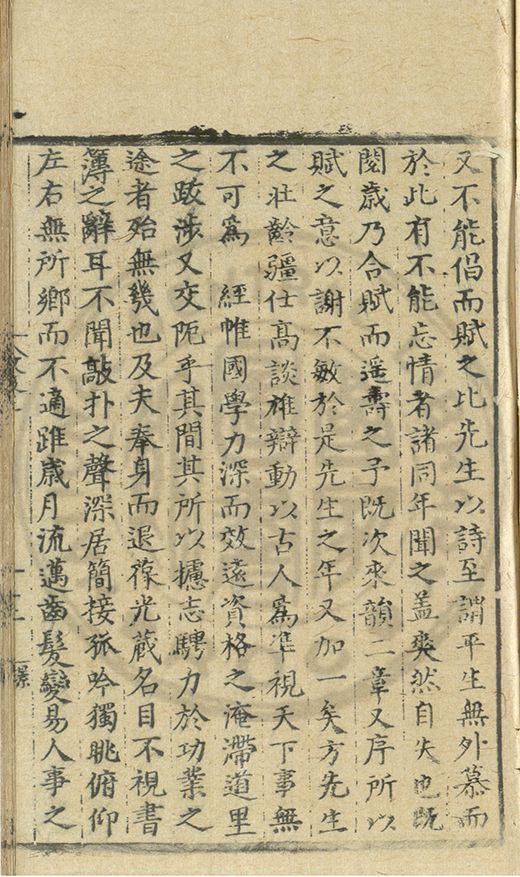 又不能倡而賦之比先生以詩至謂平生無外慕而
於此有不能忘情者諸同年聞之盖爽然自失也既
閱歲乃合賦而遥壽之予既次來韻二章又序所以
賦之意以謝不敏於是先生之年又加一矣方先生
之壯齡疆仕高談雄辯動以古人爲準視天下事無
不可爲　經帷國學力深而效遠資格之淹滯道里
之跋涉又交阨乎其間其所以攄志騁力於功業之
途者殆無幾也及夫奉身而退葆光蕆名目不視書
簿之辭耳不聞敲扑之聲深居簡接孤吟獨眺俯仰
左右無所鄉而不適雖歲月流邁齒髮變易人事之